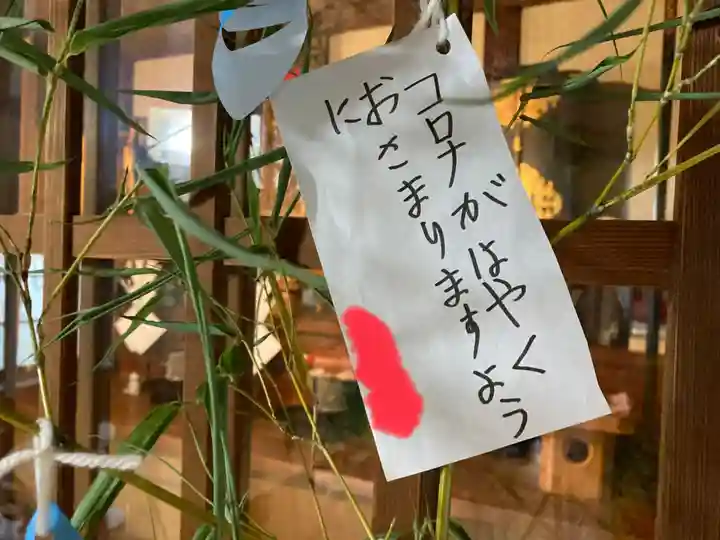 コロナがはやく
おさまりますよう
に